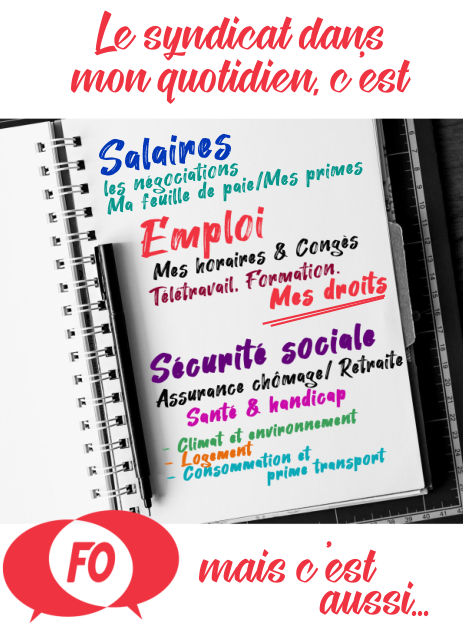 Le syndicat dans
mon quotidien, c'est
Salaires
les négociations
Ma feuille de paie/Mes primes
Emploi
Mes horaires & Congès
Télétravail. Formation.
Mes droits
Sécurité sociale
Assurance chômage/ Retraite
Santé & handicap
- Climat et environnement
- Logement
- Consommation et
prime transport
FO
mais c'est
aussi...